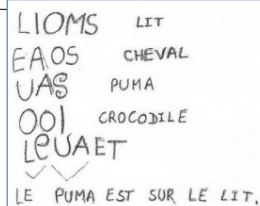 LIOMS LIT
EAOS CHEVAL
UAS PUMA
OOI CROCODILE
LEUAET
LE PUMA EST SUR LE LIT.